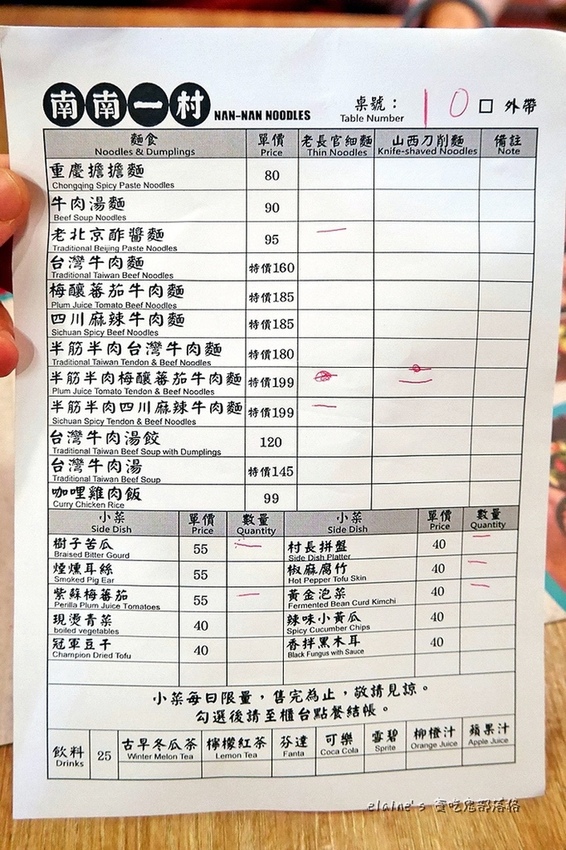 南南一村 NAN-NAN NOODLES 桌號： 10 □ 外帶
Table Number
麵食 單價 老長官細麵 山西刀削麵 備註
Noodles & Dumplings Price Thin Noodles Knife-shaved Noodles Note
重慶擔擔麵 80
Chongqing Spicy Paste Noodles
牛肉湯麵 90
Beef Soup Noodles
老北京酢醬麵 95
Traditional Beijing Paste Noodles
台灣牛肉麵 特價160
Traditional Taiwan Beef Noodles
梅釀蕃茄牛肉麵 特價185
Plum Juice Tomato Beef Noodles
四川麻辣牛肉麵 特價185
Sichuan Spicy Beef Noodles
半筋半肉台灣牛肉麵 特價180
Traditional Taiwan Tendon & Beef Noodles
半筋半肉梅釀蕃茄牛肉麵 特價199
Plum Juice Tomato Tendon & Beef Noodles
半筋半肉四川麻辣牛肉麵 特價199
Sichuan Spicy Tendon & Beef Noodles
台灣牛肉湯餃 120
Traditional Taiwan Beef Soup with Dumplings
台灣牛肉湯 特價145
Traditional Taiwan Beef Soup
咖哩雞肉飯 99
Curry Chicken Rice
小菜 單價 數量 小菜 單價 數量
Side Dish Price Quantity Side Dish Price Quantity
樹子苦瓜 55 村長拼盤 40
Braised Bitter Gourd Side Dish Platter
煙燻耳絲 55 椒麻腐竹 40
Smoked Pig Ear Hot Pepper Tofu Skin
紫蘇梅蕃茄 55 黃金泡菜 40
Perilla Plum Juice Tomatoes Fermented Bean Curd Kimchi
現燙青菜 40 辣味小黃瓜 40
boiled vegetables Spicy Cucumber Chips
冠軍豆干 40 香拌黑木耳 40
Champion Dried Tofu Black Fungus with Sauce
小菜每日限量，售完為止，敬請見諒。
勾選後請至櫃台點餐結帳。
飲料 25 古早冬瓜茶 檸檬紅茶 芬達 可樂 雪碧 柳橙汁 蘋果汁
Drinks Winter Melon Tea Lemon Tea Fanta Coca Cola Sprite Orange Juice Apple Juice
elaine's 愛吃鬼部落格